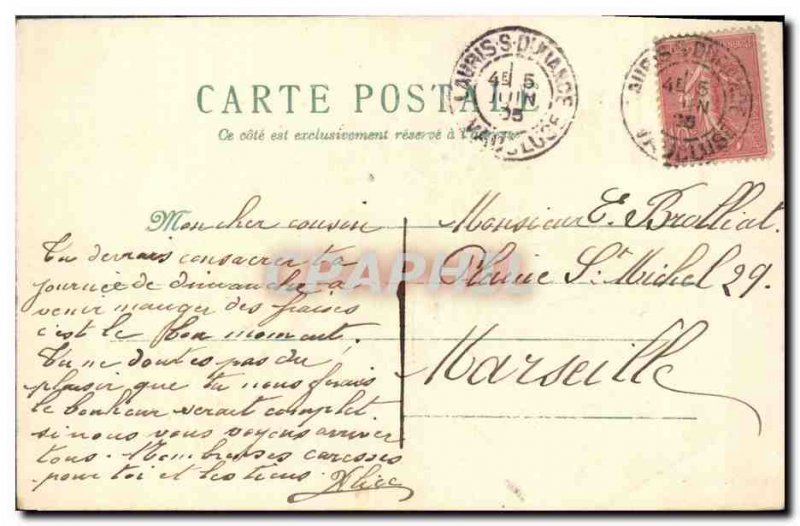 CARTE POSTALE
Ce côté est exclusivement réservé à l'adresse
LAURIS-S-DURANCE
4E 5
JUIN
05
VAUCLUSE
4E 5
05
VAUCLUSE
Mon cher cousin
Tu devrais consacrer ta
journée de dimanche à
venir manger des fraises
c'est le bon moment.
Tu ne doutes pas du
plaisir que tu nous ferais
le bonheur serait complet
si nous vous voyons arriver
tous. Nombreuses caresses
pour toi et les tiens
Monsieur E. Brolliat.
Plaine St Michel 29.
Marseille
CPAPHIL